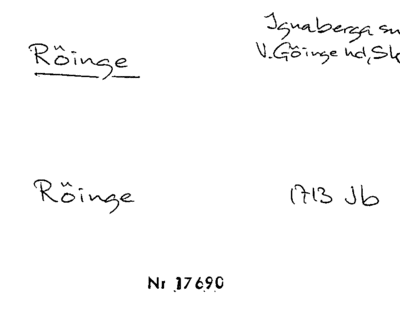 Ignaberga sn
Röinge
V. Göinge hd, Sk
Röinge
1713 Jb
Nr 17690